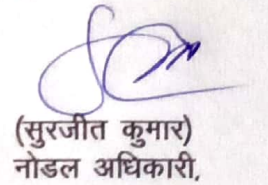 (सुरजीत कुमार)
नोडल अधिकारी,